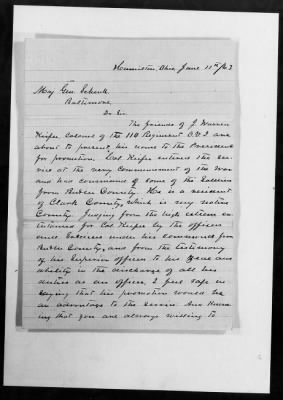 Hamilton, Ohio, June 11th /63
Maj Gen. Schenck
Baltimore.
Dr Sir
The friends of J Warren
Keifer Colonel of the 110 Regiment O.V.I are
about to present his name to the President
for promotion. Col Keifer entered the ser-
vice at the very commencement of the War
and has command of some of the Soldiers
from Butler County. He is a resident
of Clark County, which is my native
County. Judging from the high esteem en-
tertained for Col Keifer by the officers
and Soldiers under his command from
Butler County, and from the testimony
of his Superior officers to his zeal and
ability in the discharge of all his
duties as an officer, I feel safe in
saying that his promotion would be
an advantage to the service. And know-
ing that you are always willing to